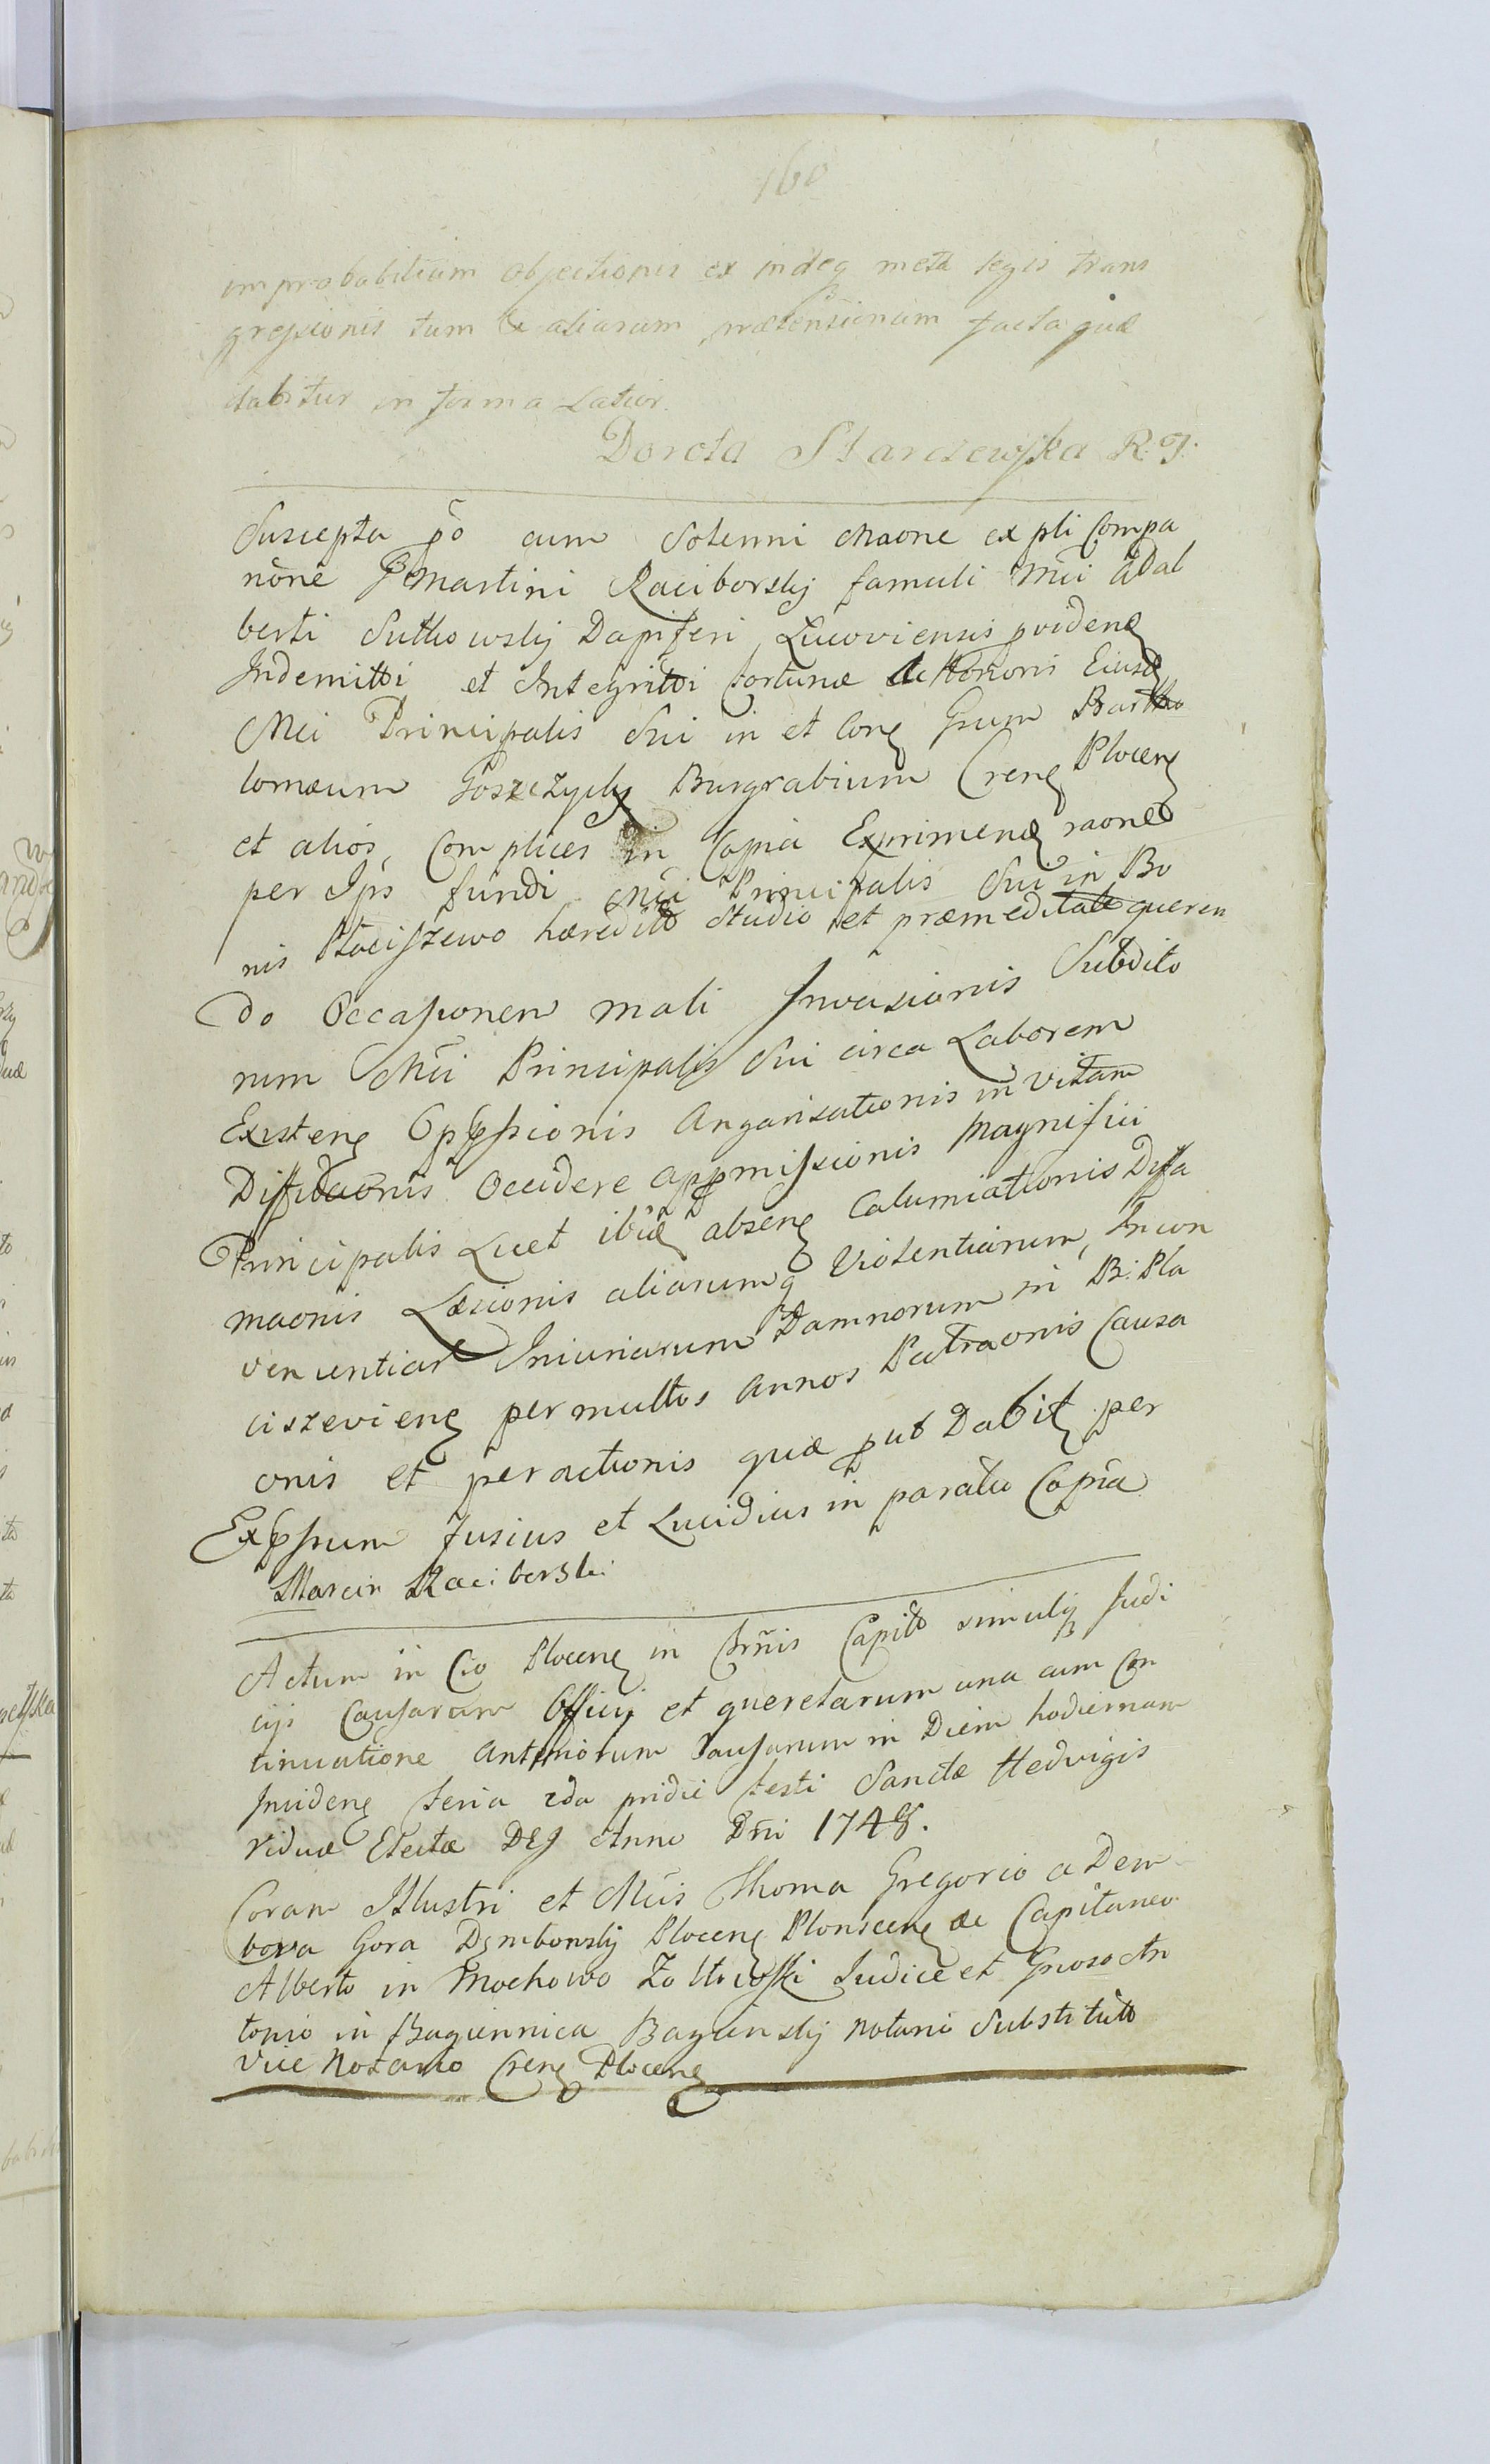 160
improbabilium objectionis ex indeq meta legis trans
gressionis tum & aliarum prætensionum facta quæ
dabitur in forma Latior.
Dorota Starczewska R. J.
Suscepta po cum Solenni Maone ex pli Compa
none G Martini Raciborskij famuli Mci Adal
berti Sutkowskij Dapiferi Lucoviensis providen
Indemitti et Integritti fortunæ ac Honoris Eiusd
Mci Principalis Sui in et Con Gsum Bartho
lomæum Goszczycky Burgrabium Cren Plocen
et alios, Complices in Copia Exprimend raone
per Ips fundi Mci Principalis Sui in Bo
nis Płaciszewo hæredit Studio et præmeditate queren
do Occasionem mali Invasionis Subdito
rum Mci Principalis Sui circa Laborem
Existen Oppssionis Angarisationis in vitam
Diffidaonis Occidere appmissionis Magnifici
Principalis Licet ibid absen Calumiationis Diffa
maonis Læsionis aliarumq Violentiarum, Incon
venientiar Iniuriarum Damnorum in B: Pla
ciszevien per multos Annos Patraonis Causa
onis et peractionis quæ put Dabit per
Expssum fusius et Lucidius in parata Copia
Marcin Raciborski
Actum in Cto Plocen in Crnis Capit simulq Judi
cijs Causarum Officij et querelarum una cum Con
tinuatione Anteriorum Causarum in Diem hodiernam
Inciden feria 2da pridie festi Sanctæ Hedvigis
Viduæ Electæ DEJ Anno Dni 1748.
Coram Illustri et Mcis Thoma Gregorio a Dem
bova Gora Dęmbowskij Plocen Plonscen &c Capitaneo
Alberto in Mochowo Zołtowski Judice et Gnoso An
tonio in Bagiennica Bagiinskij Notario Substituto
Vice Notario Cren Plocen